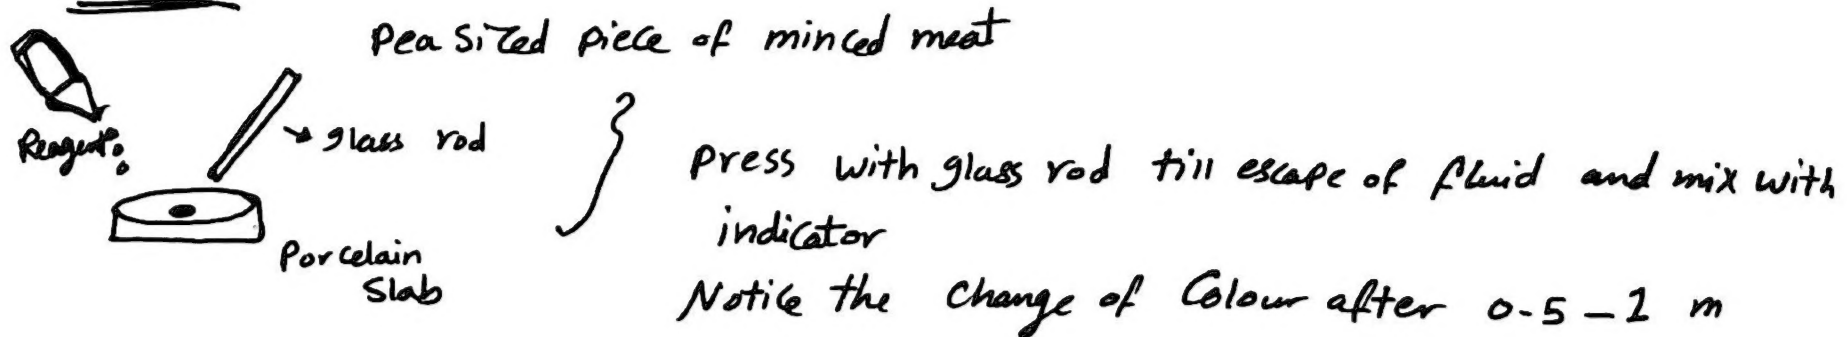 Pea sized piece of minced meat
Reagent
glass rod
Press with glass rod till escape of fluid and mix with
indicator
Porcelain
Slab
Notice the change of Colour after 0.5 - 1 m